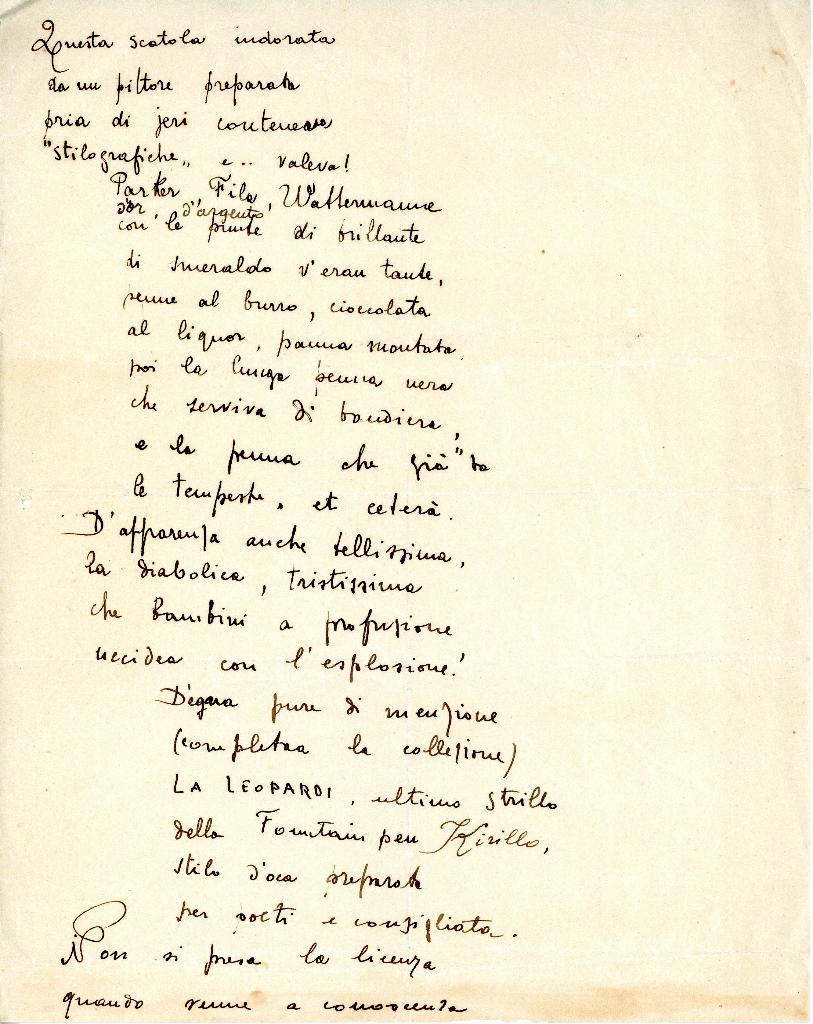 Questa scatola indorata
da un pittore preparata
pria di jeri contenea
"stilografiche„ e.. valeva!
Parker, Fila, Wattermanne
d'or, d'argento,
con le punte di brillante
di smeraldo v'eran tante,
penne al burro, cioccolata
al liquor, panna montata,
poi la lunga penna nera
che serviva di bandiera,
e la penna che già
le tempeste, et ceterà.
D'apparenza anche bellissima,
la diabolica, tristissima
che bambini a profusione
uccidea con l'esplosione!
Degna pure di menzione
(completaa la collezione)
LA LEOPARDI, ultimo strillo
della Fountain pen Kirillo,
stilo d'oca preparata
per poeti e consigliata.
Non si presa la licenza
quando venne a conoscenza